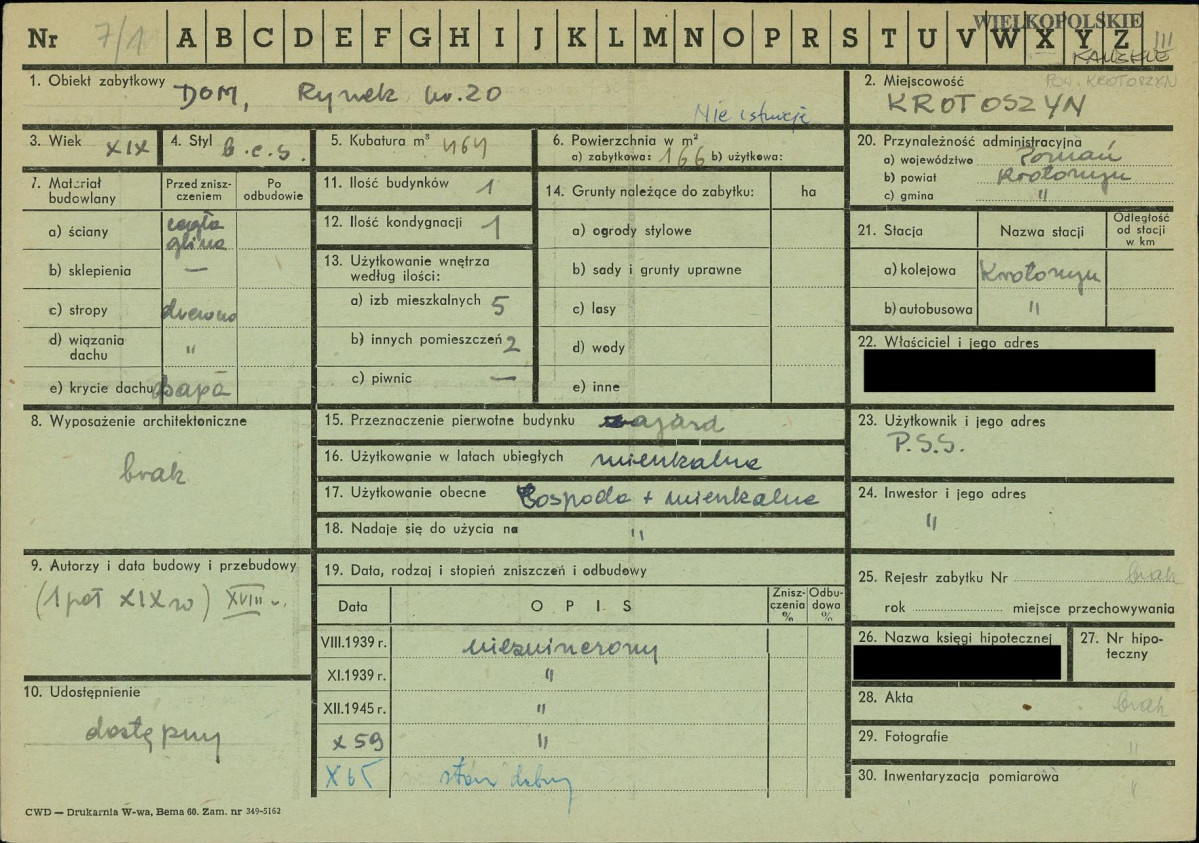 WIELKOPOLSKIE
Nr 7/1 A B C D E F G H I J K L M N O P R S T U V W X Y Z III
POW. KROTOSZYN
1. Obiekt zabytkowy DOM, Rynek nr. 20
Nie istnieje
2. Miejscowość
KROTOSZYN
3. Wiek XIX
4. Styl b.c.s.
5. Kubatura m³ 464
6. Powierzchnia w m²
a) zabytkowa: 166 b) użytkowa:
20. Przynależność administracyjna
a) województwo Poznań
b) powiat Krotoszyn
c) gmina "
7. Materiał budowlany
Przed zniszczeniem
Po odbudowie
a) ściany cegła glina
b) sklepienia —
c) stropy drewno
d) wiązania dachu "
e) krycie dachu papa
11. Ilość budynków 1
12. Ilość kondygnacji 1
13. Użytkowanie wnętrza według ilości:
a) izb mieszkalnych 5
b) innych pomieszczeń 2
c) piwnic —
14. Grunty należące do zabytku: ha
a) ogrody stylowe
b) sady i grunty uprawne
c) lasy
d) wody
e) inne
21. Stacja
Nazwa stacji
Odległość od stacji w km
a) kolejowa Krotoszyn
b) autobusowa "
22. Właściciel i jego adres
8. Wyposażenie architektoniczne
brak
15. Przeznaczenie pierwotne budynku zajazd
16. Użytkowanie w latach ubiegłych mieszkalne
17. Użytkowanie obecne Gospoda + mieszkalne
18. Nadaje się do użycia na "
23. Użytkownik i jego adres
P.S.S.
24. Inwestor i jego adres
"
9. Autorzy i data budowy i przebudowy
(1 poł XIX w) XVIII w.
19. Data, rodzaj i stopień zniszczeń i odbudowy
Data
OPIS
Zniszczenia %
Odbudowa %
VIII.1939 r. niezniszczony
XI.1939 r. "
XII.1945 r. "
X 59 "
X 65 stan dobry
25. Rejestr zabytku Nr brak
rok miejsce przechowywania
26. Nazwa księgi hipotecznej
27. Nr hipoteczny
10. Udostępnienie
dostępny
28. Akta brak
29. Fotografie "
30. Inwentaryzacja pomiarowa "
CWD — Drukarnia W-wa, Bema 60. Zam. nr 349-5162